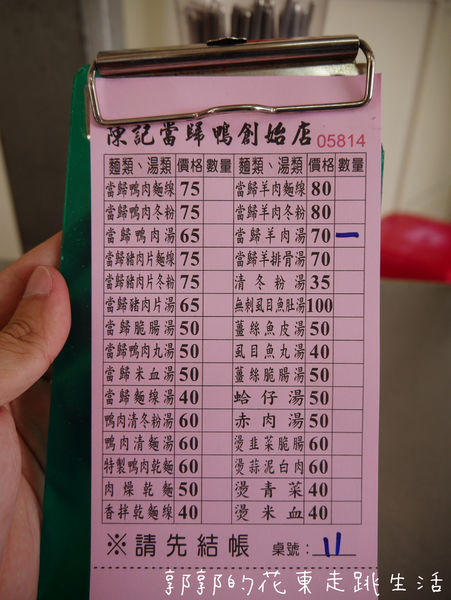 陳記當歸鴨創始店 05814
麵類、湯類 價格 數量 麵類、湯類 價格 數量
當歸鴨肉麵線 75 當歸羊肉麵線 80
當歸鴨肉冬粉 75 當歸羊肉冬粉 80
當歸鴨肉湯 65 當歸羊肉湯 70 一
當歸豬肉片麵線 75 當歸羊排骨湯 70
當歸豬肉片冬粉 75 清冬粉湯 35
當歸豬肉片湯 65 無刺虱目魚肚湯 100
當歸脆腸湯 50 薑絲魚皮湯 50
當歸鴨肉丸湯 50 虱目魚丸湯 40
當歸米血湯 50 薑絲脆腸湯 50
當歸麵線湯 40 蛤仔湯 50
鴨肉清冬粉湯 60 赤肉湯 50
鴨肉清麵湯 60 燙韭菜脆腸 60
特製鴨肉乾麵 60 燙蒜泥白肉 60
肉燥乾麵 50 燙青菜 40
香拌乾麵線 40 燙米血 40
※請先結帳 桌號: 11
郭郭的花東走跳生活